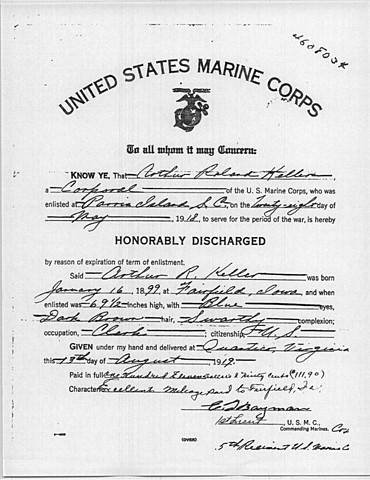 460803*
UNITED STATES MARINE CORPS
To all whom it may Concern:
KNOW YE, That Arthur Roland Keller
a Corporal of the U. S. Marine Corps, who was
enlisted at Parris Island S. C., on the Twenty eight day of
May, 1918, to serve for the period of the war, is hereby
HONORABLY DISCHARGED
by reason of expiration of term of enlistment.
Said Arthur R. Keller was born
January 16, 1899, at Fairfield, Iowa, and when
enlisted was 69½ inches high, with Blue eyes,
Dark Brown hair, Swarthy complexion;
occupation, Clerk; citizenship, U. S.
GIVEN under my hand and delivered at Quantico, Virginia
this 13th day of August, 1919.
Paid in full One hundred Eleven dollars & Ninty cents (111.90)
Character Excellent Mileage paid to Fairfield, Ia.
1st Lieut, U. S. M. C.,
Commanding Marines. Co
(OVER)
5th Regiment U.S. Marine C